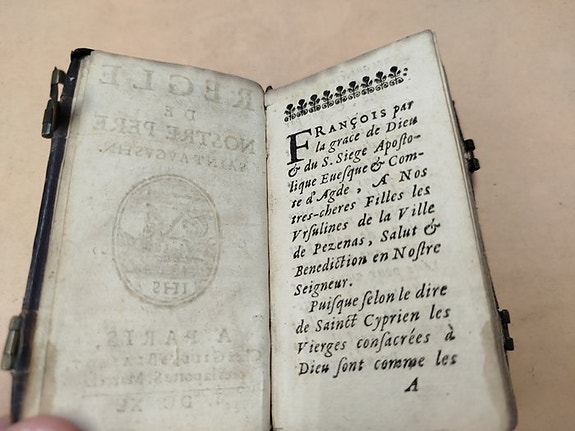 REGLE
DE
NOSTRE PERE
SAINT AVGVSTIN.
IHS
A PARIS,
FRANÇOIS par
la grace de Dieu
& du S. Siege Aposto-
lique Euesque & Com-
te d'Agde, A Nos
tres-cheres Filles les
Vrsulines de la Ville
de Pezenas, Salut &
Benediction en Nostre
Seigneur.
Puisque selon le dire
de Sainct Cyprien les
Vierges consacrées à
Dieu sont comme les
A